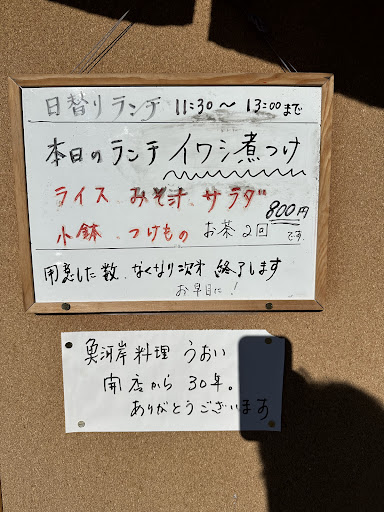 日替りランチ 11:30～13:00まで
本日のランチ イワシ煮つけ
ライス みそ汁 サラダ 800円
小鉢 つけもの お茶2回 です
用意した数、なくなり次才 終了します
お早目に!
魚河岸料理 うおい
開店から 30年。
ありがとうございます